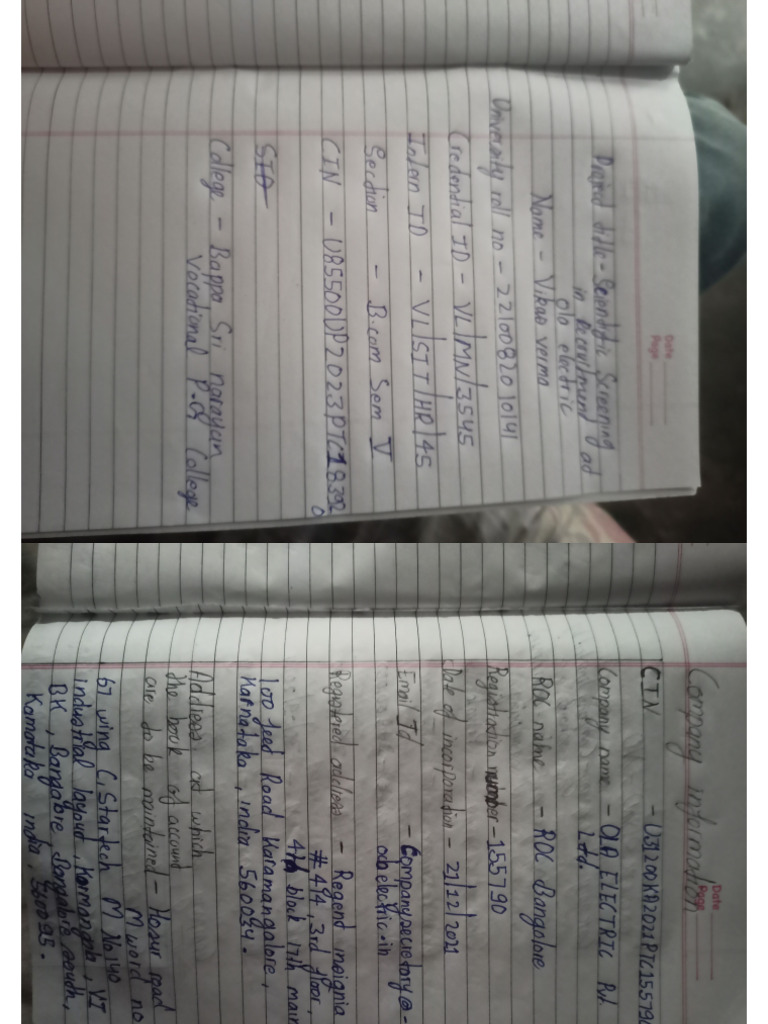 Date
Page
Project title - Scientific Screening
in Recruitment ad
ola electric
Name - Vikas verma
University roll no - 2210082010141
Credential ID - VL/MN/3545
Intern ID - VL/SIT/HR/45
Section - B.com Sem V
CIN - U85500UP2023PTC18392
0
College - Bappa Sri narayan
Vocational P.G College
Date
Page
Company information
CIN - U31200KA2021PTC155790
Company name - OLA ELECTRIC Pvt.
Ltd.
ROC name - ROC Bangalore
Registration number - 155790
Date of incorporation - 21/12/2021
Email Id - Companysecretary@-
olaelectric.in
Registered address - Regent insignia
#414, 3rd floor,
4th block 17th main
100 feet Road Karamangalore,
Karnataka, india 560034.
Address at which
the book of account
are to be maintained - Hosur road
M word no.
67 wing C, Startech M No 140
industrial layout, Karmangala, VI
BK, Bangalore Bangalore south,
Karnataka india, 560095.